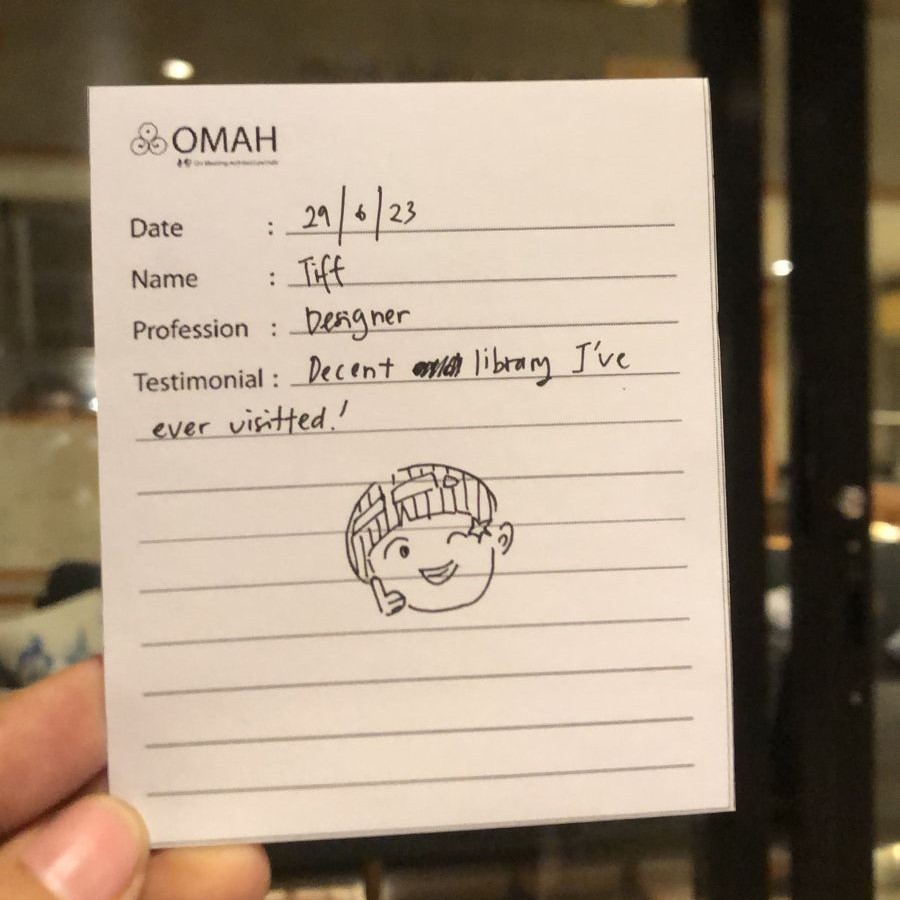 OMAH
Date : 29/6/23
Name : Tiff
Profession : Designer
Testimonial : Decent library I've
ever visitted!